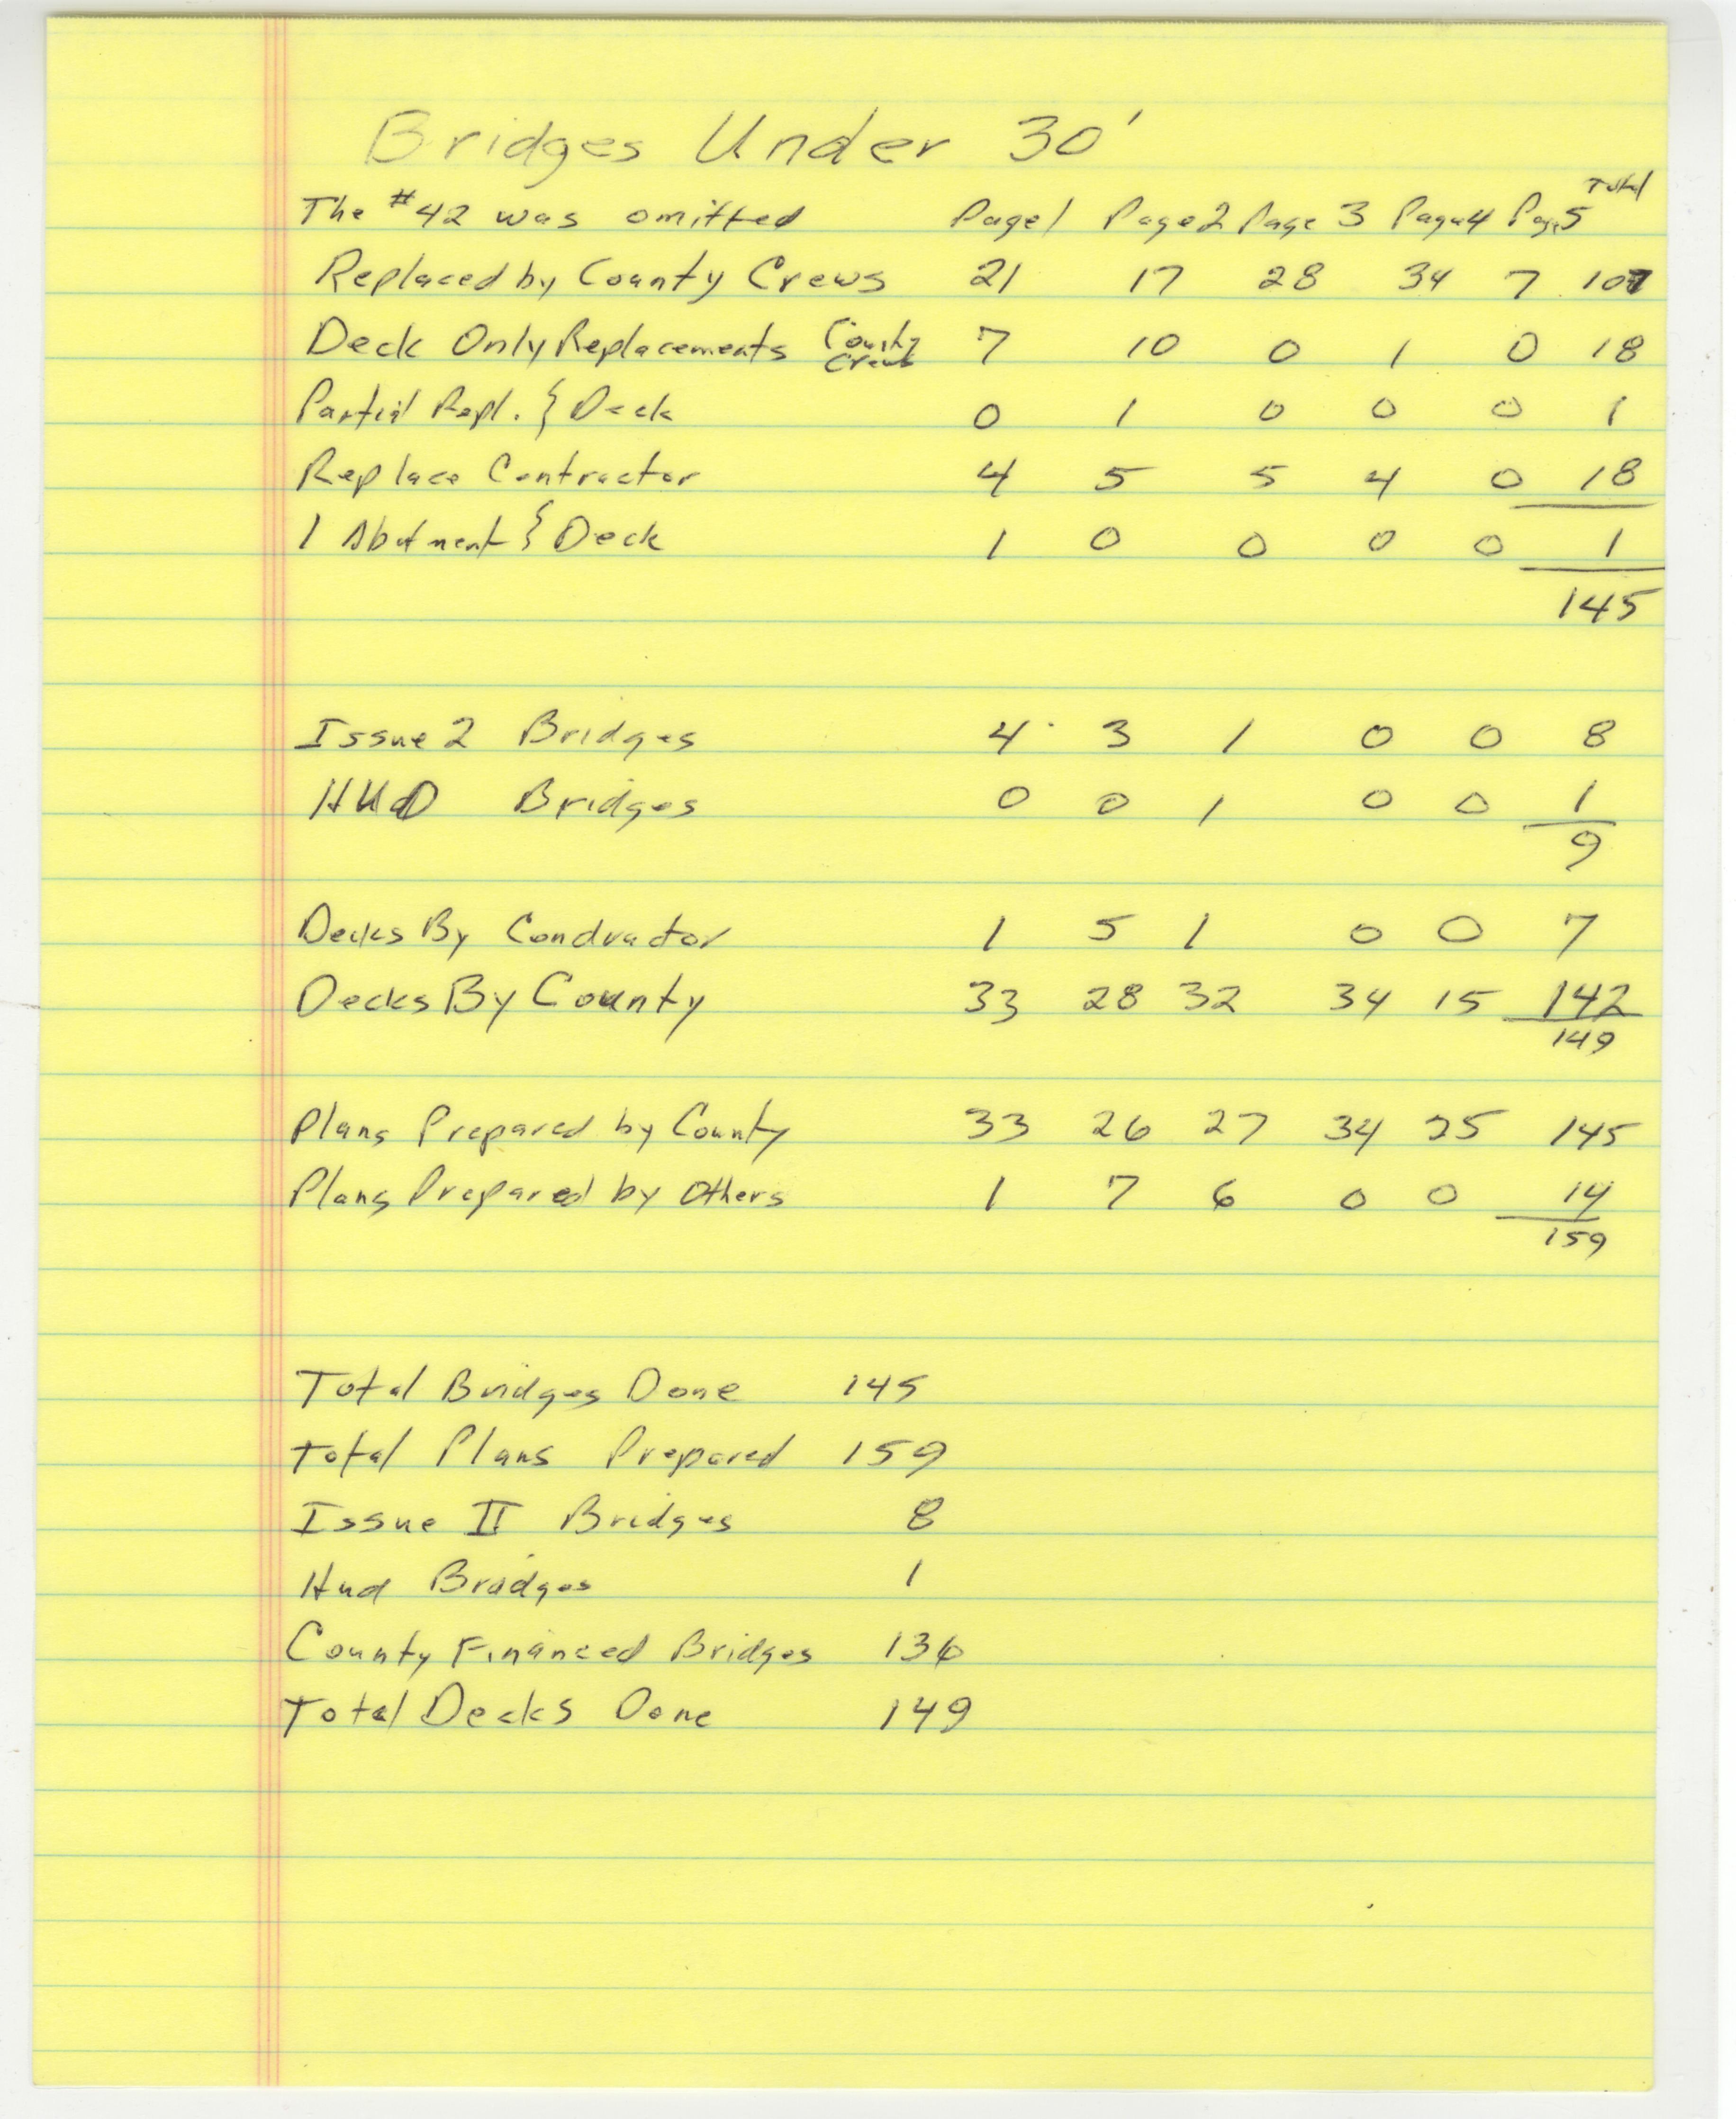 Bridges Under 30'
Total
The #42 was omitted Page 1 Page 2 Page 3 Page 4 Page 5
Replaced by County Crews 21 17 28 34 7 107
Deck Only Replacements County Crews 7 10 0 1 0 18
Partial Repl. & Deck 0 1 0 0 0 1
Replace Contractor 4 5 5 4 0 18
1 Abutment & Deck 1 0 0 0 0 1
145
Issue 2 Bridges 4 3 1 0 0 8
HUD Bridges 0 0 1 0 0 1
9
Decks By Condractor 1 5 1 0 0 7
Decks By County 33 28 32 34 15 142
149
Plans Prepared by County 33 26 27 34 25 145
Plans Prepared by Others 1 7 6 0 0 14
159
Total Bridges Done 145
Total Plans Prepared 159
Issue II Bridges 8
Hud Bridges 1
County Financed Bridges 136
Total Decks Done 149